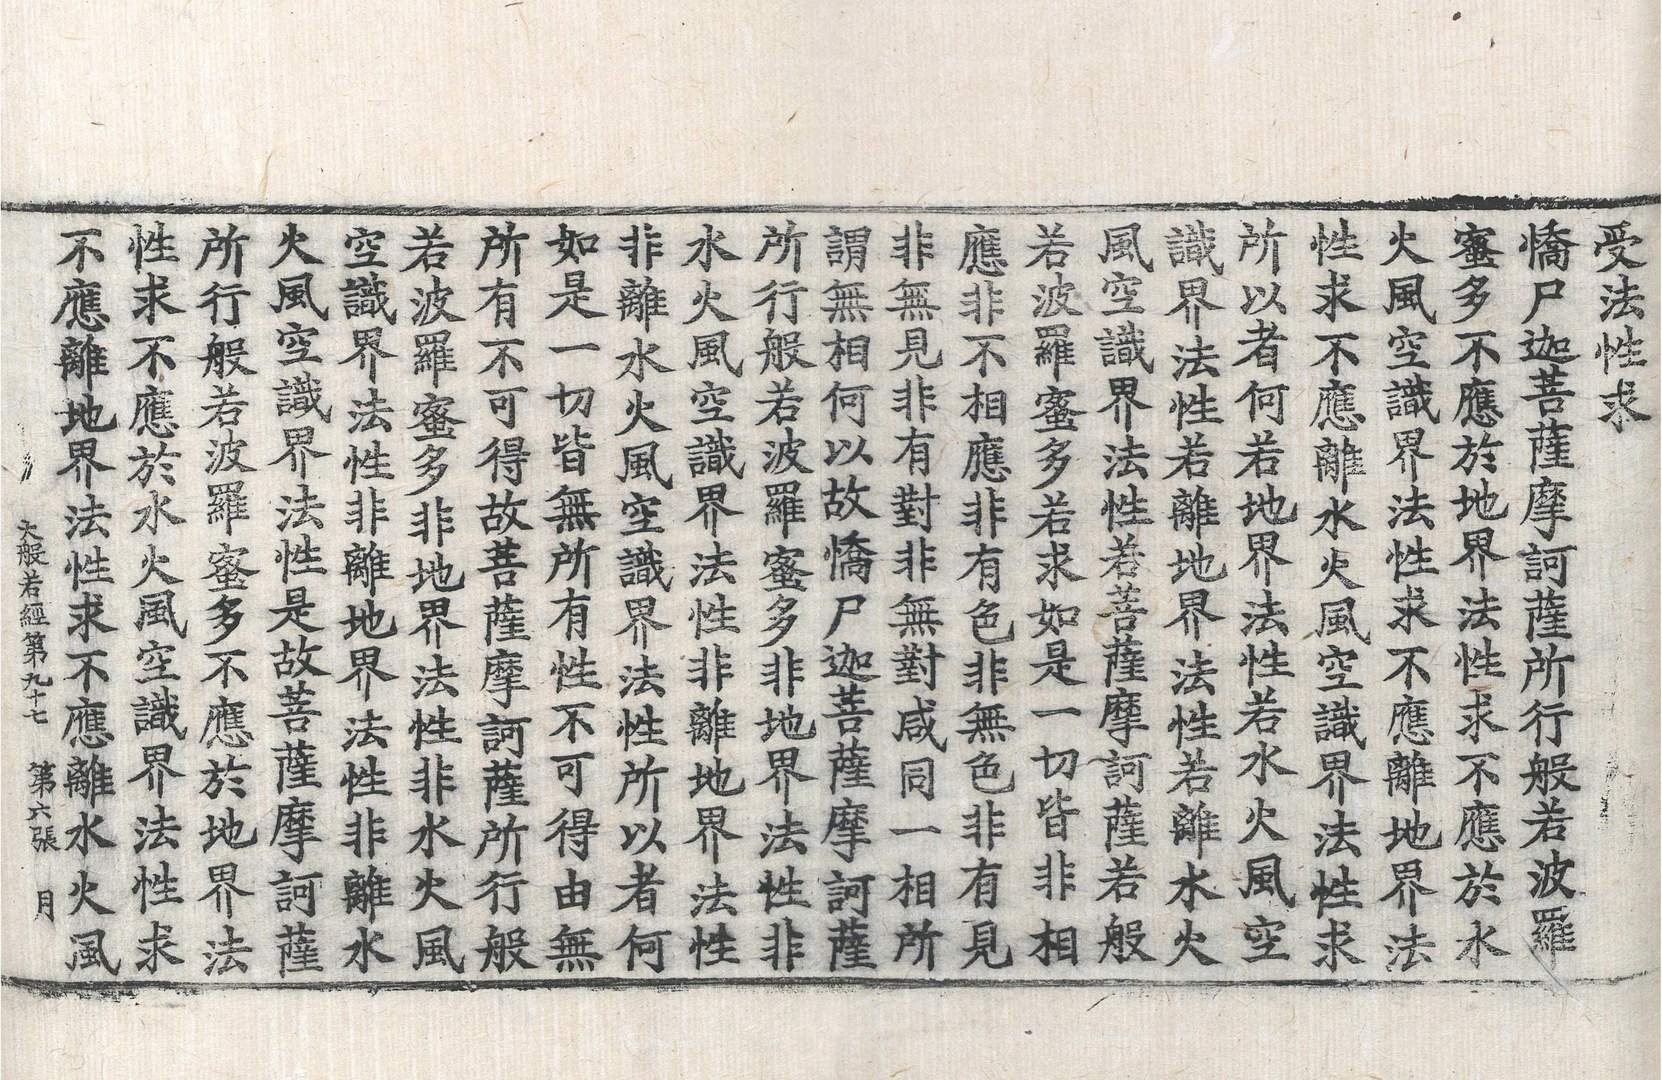 受法性求
憍尸迦菩薩摩訶薩所行般若波羅
蜜多不應於地界法性求不應於水
火風空識界法性求不應離地界法
性求不應離水火風空識界法性求
所以者何若地界法性若水火風空
識界法性若離地界法性若離水火
風空識界法性若菩薩摩訶薩若般
若波羅蜜多若求如是一切皆非相
應非不相應非有色非無色非有見
非無見非有對非無對咸同一相所
謂無相何以故憍尸迦菩薩摩訶薩
所行般若波羅蜜多非地界法性非
水火風空識界法性非離地界法性
非離水火風空識界法性所以者何
如是一切皆無所有性不可得由無
所有不可得故菩薩摩訶薩所行般
若波羅蜜多非地界法性非水火風
空識界法性非離地界法性非離水
火風空識界法性是故菩薩摩訶薩
所行般若波羅蜜多不應於地界法
性求不應於水火風空識界法性求
不應離地界法性求不應離水火風
大般若經第九十七 第六張 月